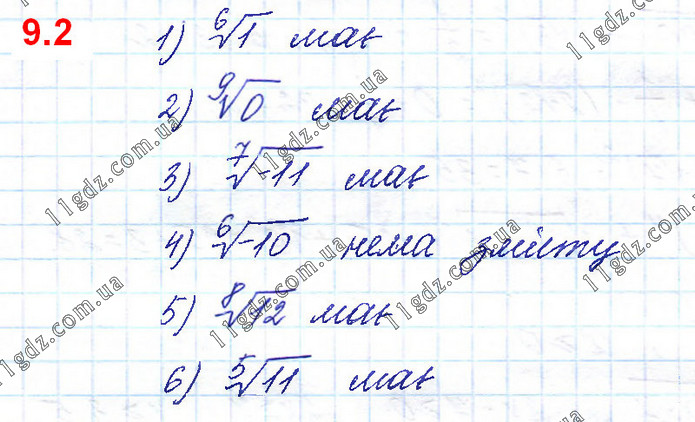 9.2
1) ⁶√1 має
2) ⁹√0 має
3) ⁷√-11 має
4) ⁶√-10 нема змісту
5) ⁸√12 має
6) ⁵√11 має
11gdz.com.ua
11gdz.com.ua
11gdz.com.ua
11gdz.com.ua
11gdz.com.ua
11gdz.com.ua
11gdz.com.ua
11gdz.com.ua